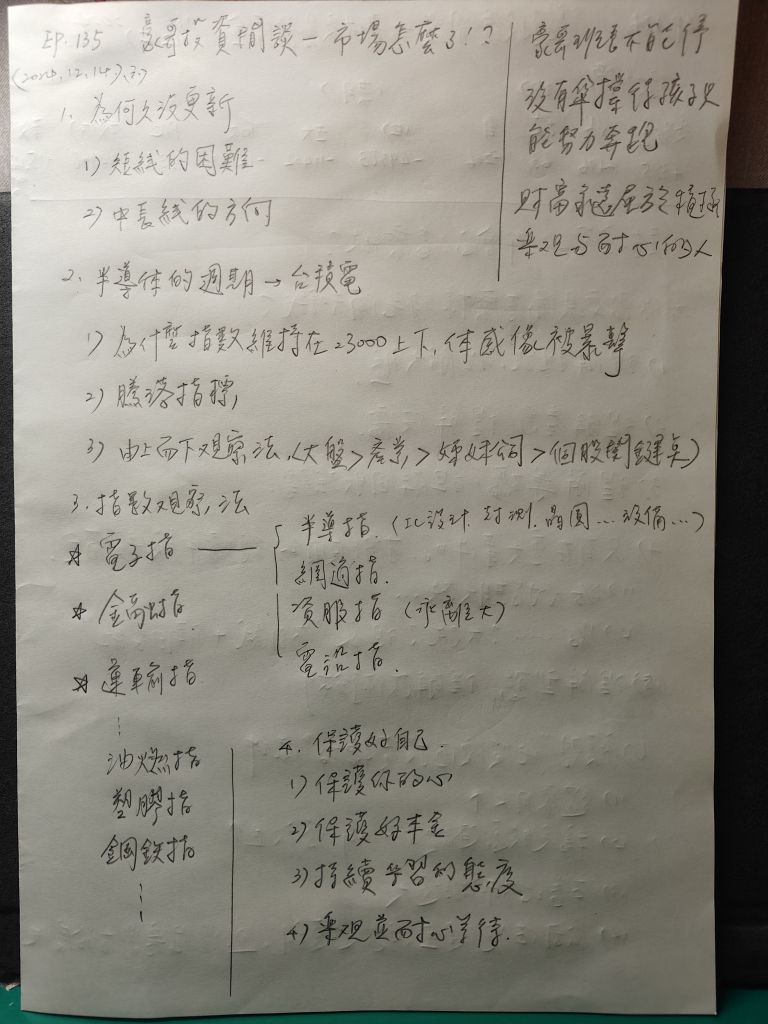 EP. 135 豪哥投資閒談－市場怎麼了!?
(2024.12.14)
1. 為何久沒更新
1) 短線的困難
2) 中長線的方向
豪哥班長不能停
沒有傘撐 孩子只
能努力奔跑
財富永遠屬於積極
樂觀與耐心的人
2. 半導体的週期→台積電
1) 為什麼指數維持在23000上下, 体感像被暴擊
2) 騰落指標,
3) 由上而下观察法, (大盤>產業>姊妹公司>個股関鍵点)
3. 指数观察法
☆ 電子指
半導指. (IC設計. 封測. 晶圓... 設備...)
網通指.
資服指
電設指.
☆ 金融指
☆ 運輸指.
油燃指
塑膠指
鋼鉄指
4. 保護好自己.
1) 保護你的心
2) 保護好本金
3) 持續学習的態度
4) 樂观並耐心等待.